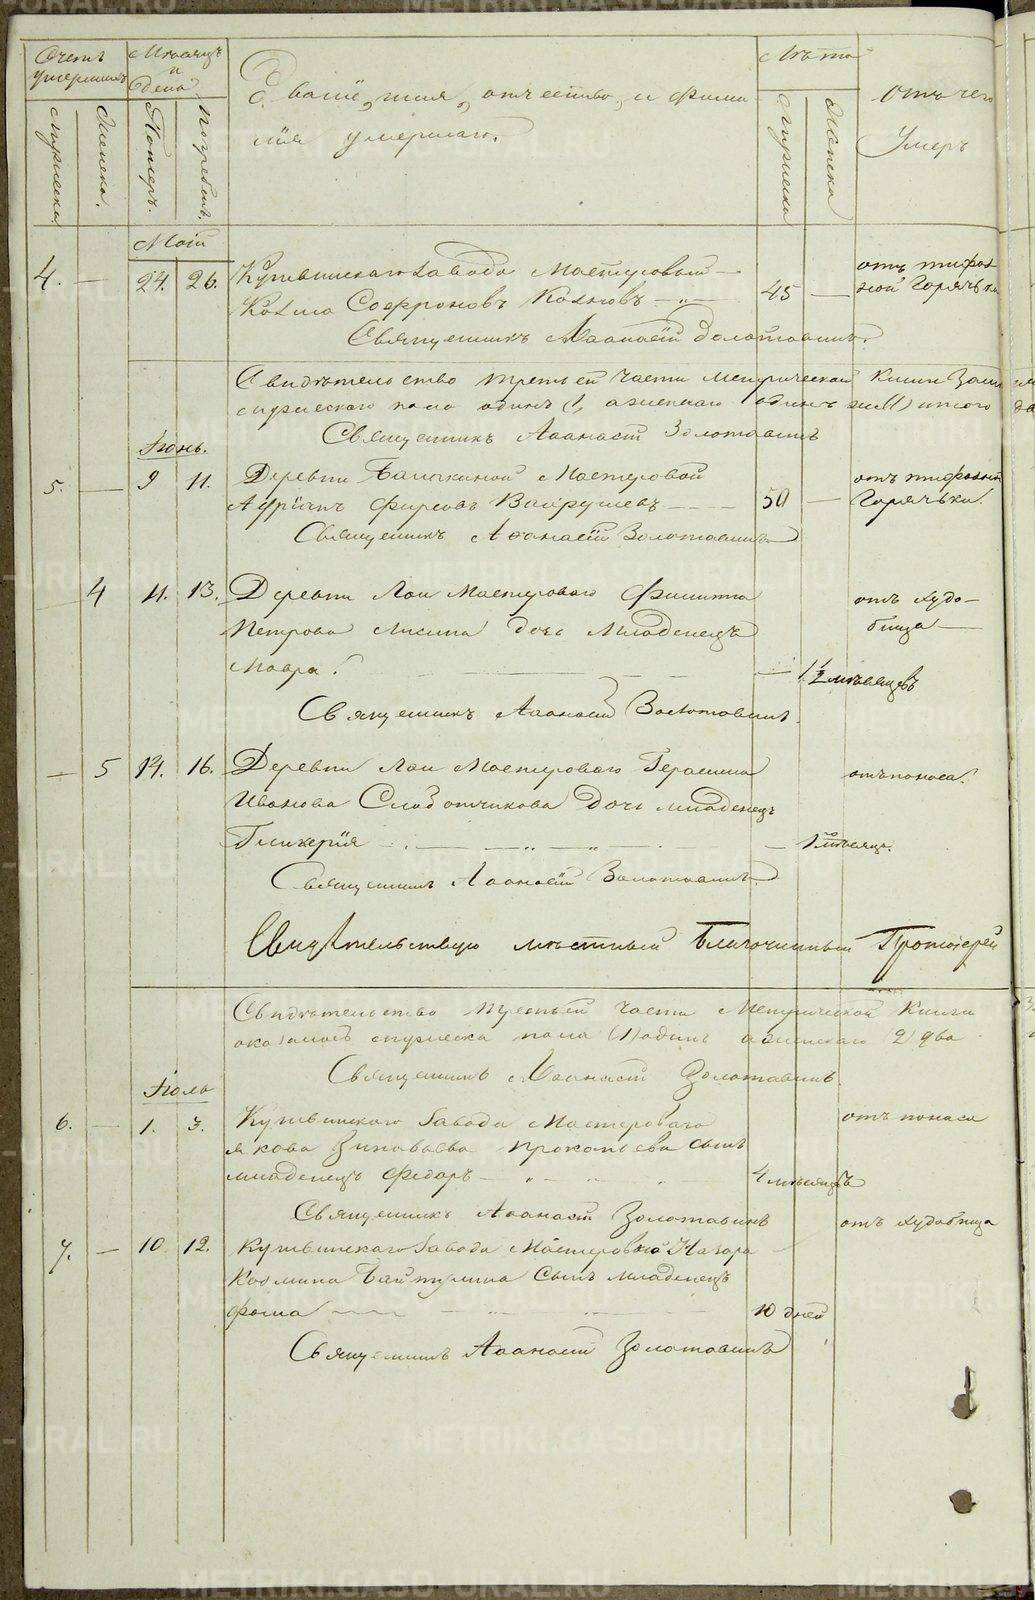 Счетъ умершихъ
Мѣсяцъ и День
Званіе, имя, отчество, и фами-
лія умершаго.
Лѣта
Отъ чего
Умеръ
Мужеска.
Женска.
Померъ.
Погребенъ.
Мужеска
Женска
Май
4. — 24. 26. Кушвинскаго завода Мастеровый —
Козма Софроновъ 45 —
отъ тифоз-
ной Горячьки
Священникъ Аѳанасій Золотавинъ.
Свидѣтельство третьей части Метрической Книги
мужескаго пола одинъ (1, а женскаго итого
Священникъ Аѳанасій Золотавинъ
Іюнь.
5. — 9 11. Деревни Мастеровой
Фирсовъ Вахрушевъ — 50 —
отъ тифозной
Горячьки.
Священникъ Аѳанасій Золотавинъ
— 4 11. 13. Деревни Лаи Мастероваго Филиппа
Петрова дочь Младенецъ
Мавра. — 1 1/2 мѣсяцевъ
отъ худо-
бища —
Священникъ Аѳанасій Золотавинъ
— 5 14. 16. Деревни Лаи Мастероваго Герасима
Иванова Слободчикова дочь младенецъ
Гликерія — 1 мѣсяца.
отъ поноса.
Священникъ Аѳанасій Золотавинъ
Свидѣтельствую мѣстный Благочинный Протоіерей
Свидѣтельство третьей части Метрической Книги
мужеска пола (1) одинъ а женскаго (2) два
Священникъ Аѳанасій Золотавинъ
Іюль
6. — 1. 3. Кушвинскаго Завода Мастероваго
Якова Зиновьева Прокопьева сынъ
младенецъ Федоръ — 4 мѣсяцъ
отъ поноса
Священникъ Аѳанасій Золотавинъ
отъ худобища
7. — 10 12. Кушвинскаго Завода Мастероваго Назара
Козмина сынъ младенецъ
Фома — 10 дней
Священникъ Аѳанасій Золотавинъ
METRIKI.GASO-URAL.RU